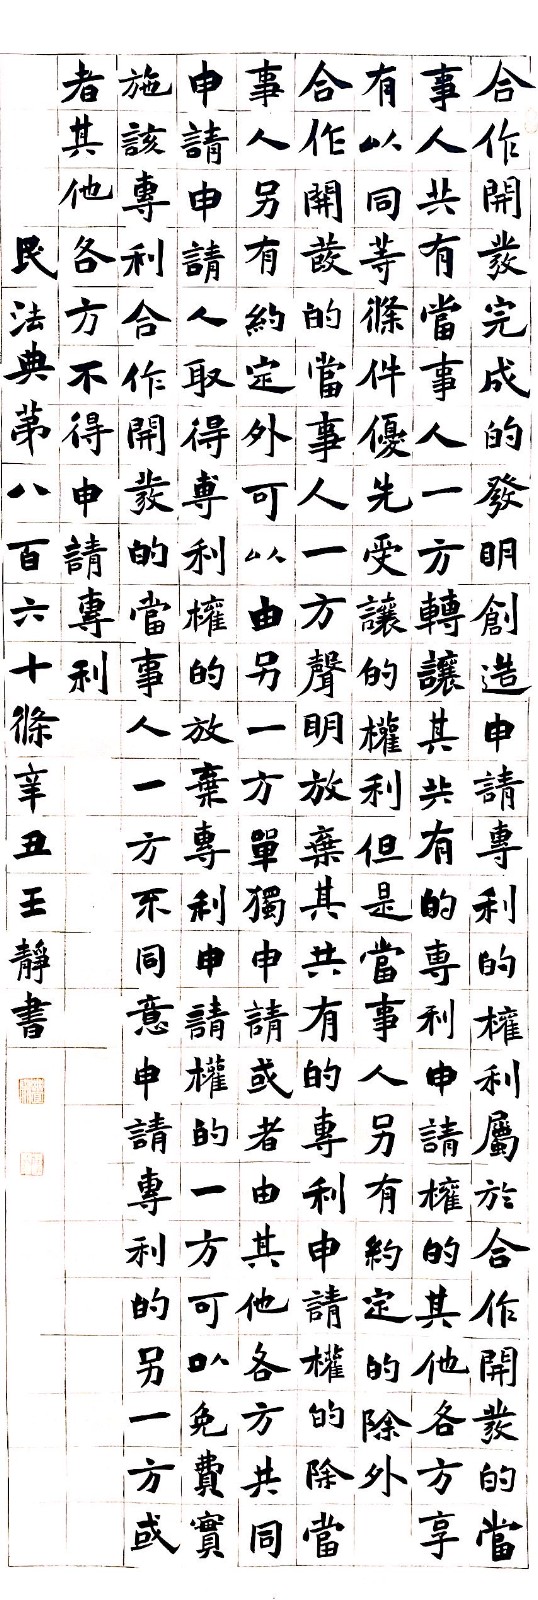 合作開發完成的發明創造申請專利的權利屬於合作開發的當
事人共有當事人一方轉讓其共有的專利申請權的其他各方享
有以同等條件優先受讓的權利但是當事人另有約定的除外
合作開發的當事人一方聲明放棄其共有的專利申請權的除當
事人另有約定外可以由另一方單獨申請或者由其他各方共同
申請申請人取得專利權的放棄專利申請權的一方可以免費實
施該專利合作開發的當事人一方不同意申請專利的另一方或
者其他各方不得申請專利
民法典第八百六十條辛丑王靜書